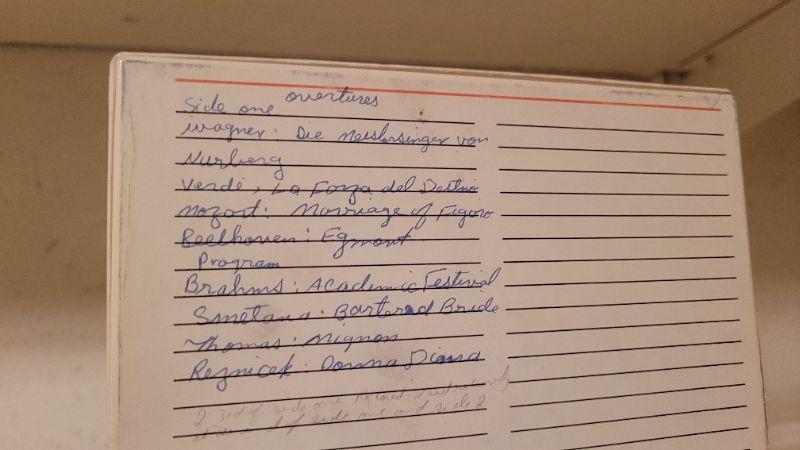 Side one overtures
Wagner: Die Meistersinger von
Nurberg
Verdi, La Forza del Destino
Mozart: Marriage of Figaro
Beethoven: Egmont
Program
Brahms: Academic Festival
Smetana: Bartered Bride
Thomas: Mignon
Reznicek: Donna Diana
2 3rd of side one
of side one and side 2